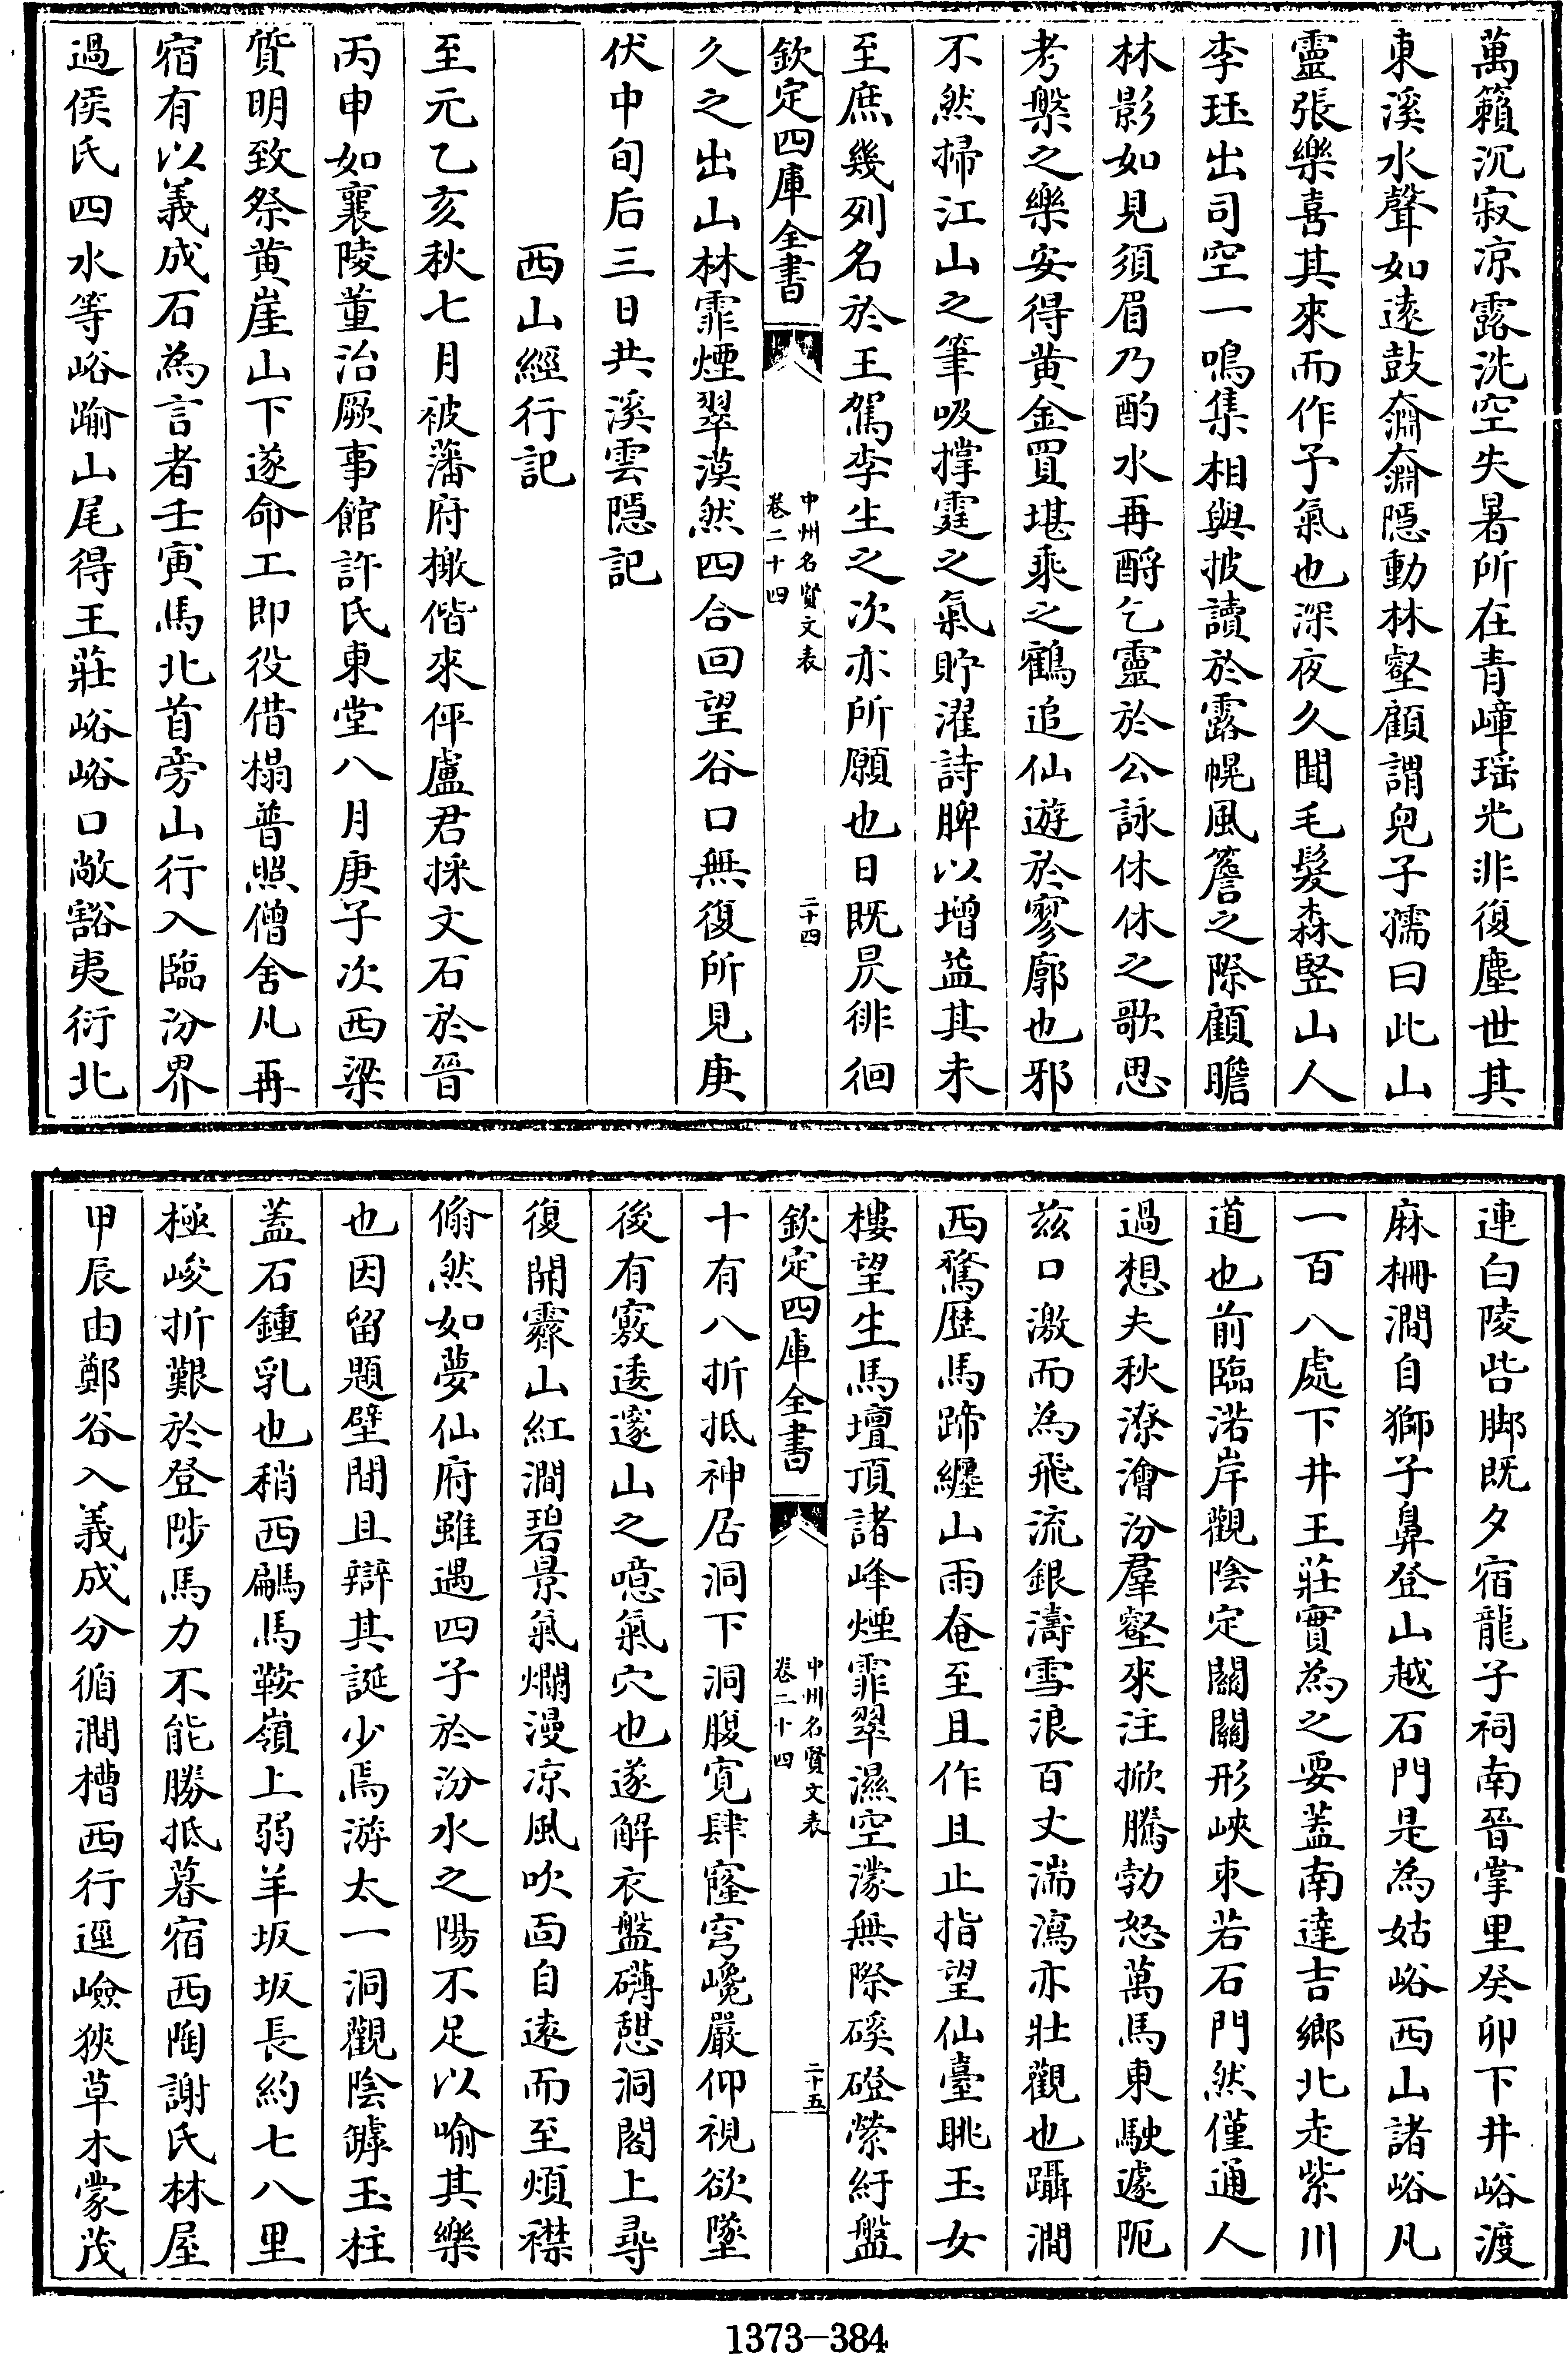 萬籟沉寂凉露洗空失暑所在青嶂瑶光非復塵世其
東溪水聲如遠鼓鼝鼝隱動林壑顧謂兒子孺曰此山
靈張樂喜其來而作予氣也深夜久聞毛髮森竪山人
李珏出司空一鳴集相與披讀於露幌風簷之際顧瞻
林影如見須眉乃酌水再酹乞靈於公詠休休之歌思
考槃之樂安得黄金買堪乘之鶴追仙遊於寥廓也邪
不然掃江山之筆吸撑霆之氣貯濯詩脾以增益其未
至庶幾列名於王駕李生之次亦所願也日既昃徘徊
欽定四庫全書
中州名賢文表
卷二十四
二十四
久之出山林霏煙翠漠然四合回望谷口無復所見庚
伏中旬后三日共溪雲隱記
西山經行記
至元乙亥秋七月被藩府檄偕來伻盧君採文石於晉
丙申如襄陵董治厥事館許氏東堂八月庚子次西梁
質明致祭黄崖山下遂命工即役借榻普照僧舍凡再
宿有以義成石為言者壬寅馬北首旁山行入臨汾界
過侯氏四水等峪踰山尾得王莊峪峪口敞豁夷衍北
連白陵呰脚既夕宿龍子祠南晉掌里癸卯下井峪渡
麻栅澗自獅子鼻登山越石門是為姑峪西山諸峪凡
一百八處下井王莊實為之要蓋南達吉鄉北走紫川
道也前臨渃岸觀陰定關關形峽朿若石門然僅通人
過想夫秋潦澮汾羣壑來注掀騰勃怒萬馬東駛遽阨
兹口激而為飛流銀濤雪浪百丈湍瀉亦壯觀也躡澗
西騖歷馬蹄纒山雨奄至且作且止指望仙臺眺玉女
樓望生馬壇頂諸峰煙霏翠濕空濛無際磎磴縈紆盤
欽定四庫全書
中州名賢文表
卷二十四
二十五
十有八折抵神居洞下洞腹寛肆窿穹巉嚴仰視欲墜
後有竅逶邃山之噫氣穴也遂解衣盤礴憇洞閣上尋
復開霽山紅澗碧景氣爛漫凉風吹面自遠而至煩襟
翛然如夢仙府雖遇四子於汾水之陽不足以喻其樂
也因留題壁間且辯其誕少焉游太一洞觀陰罅玉柱
蓋石鍾乳也稍西驌馬鞍嶺上弱羊坂坂長約七八里
極峻折艱於登陟馬力不能勝抵暮宿西陶謝氏林屋
甲辰由鄭谷入義成分循澗槽西行逕嶮狹草木蒙茂
1373-384